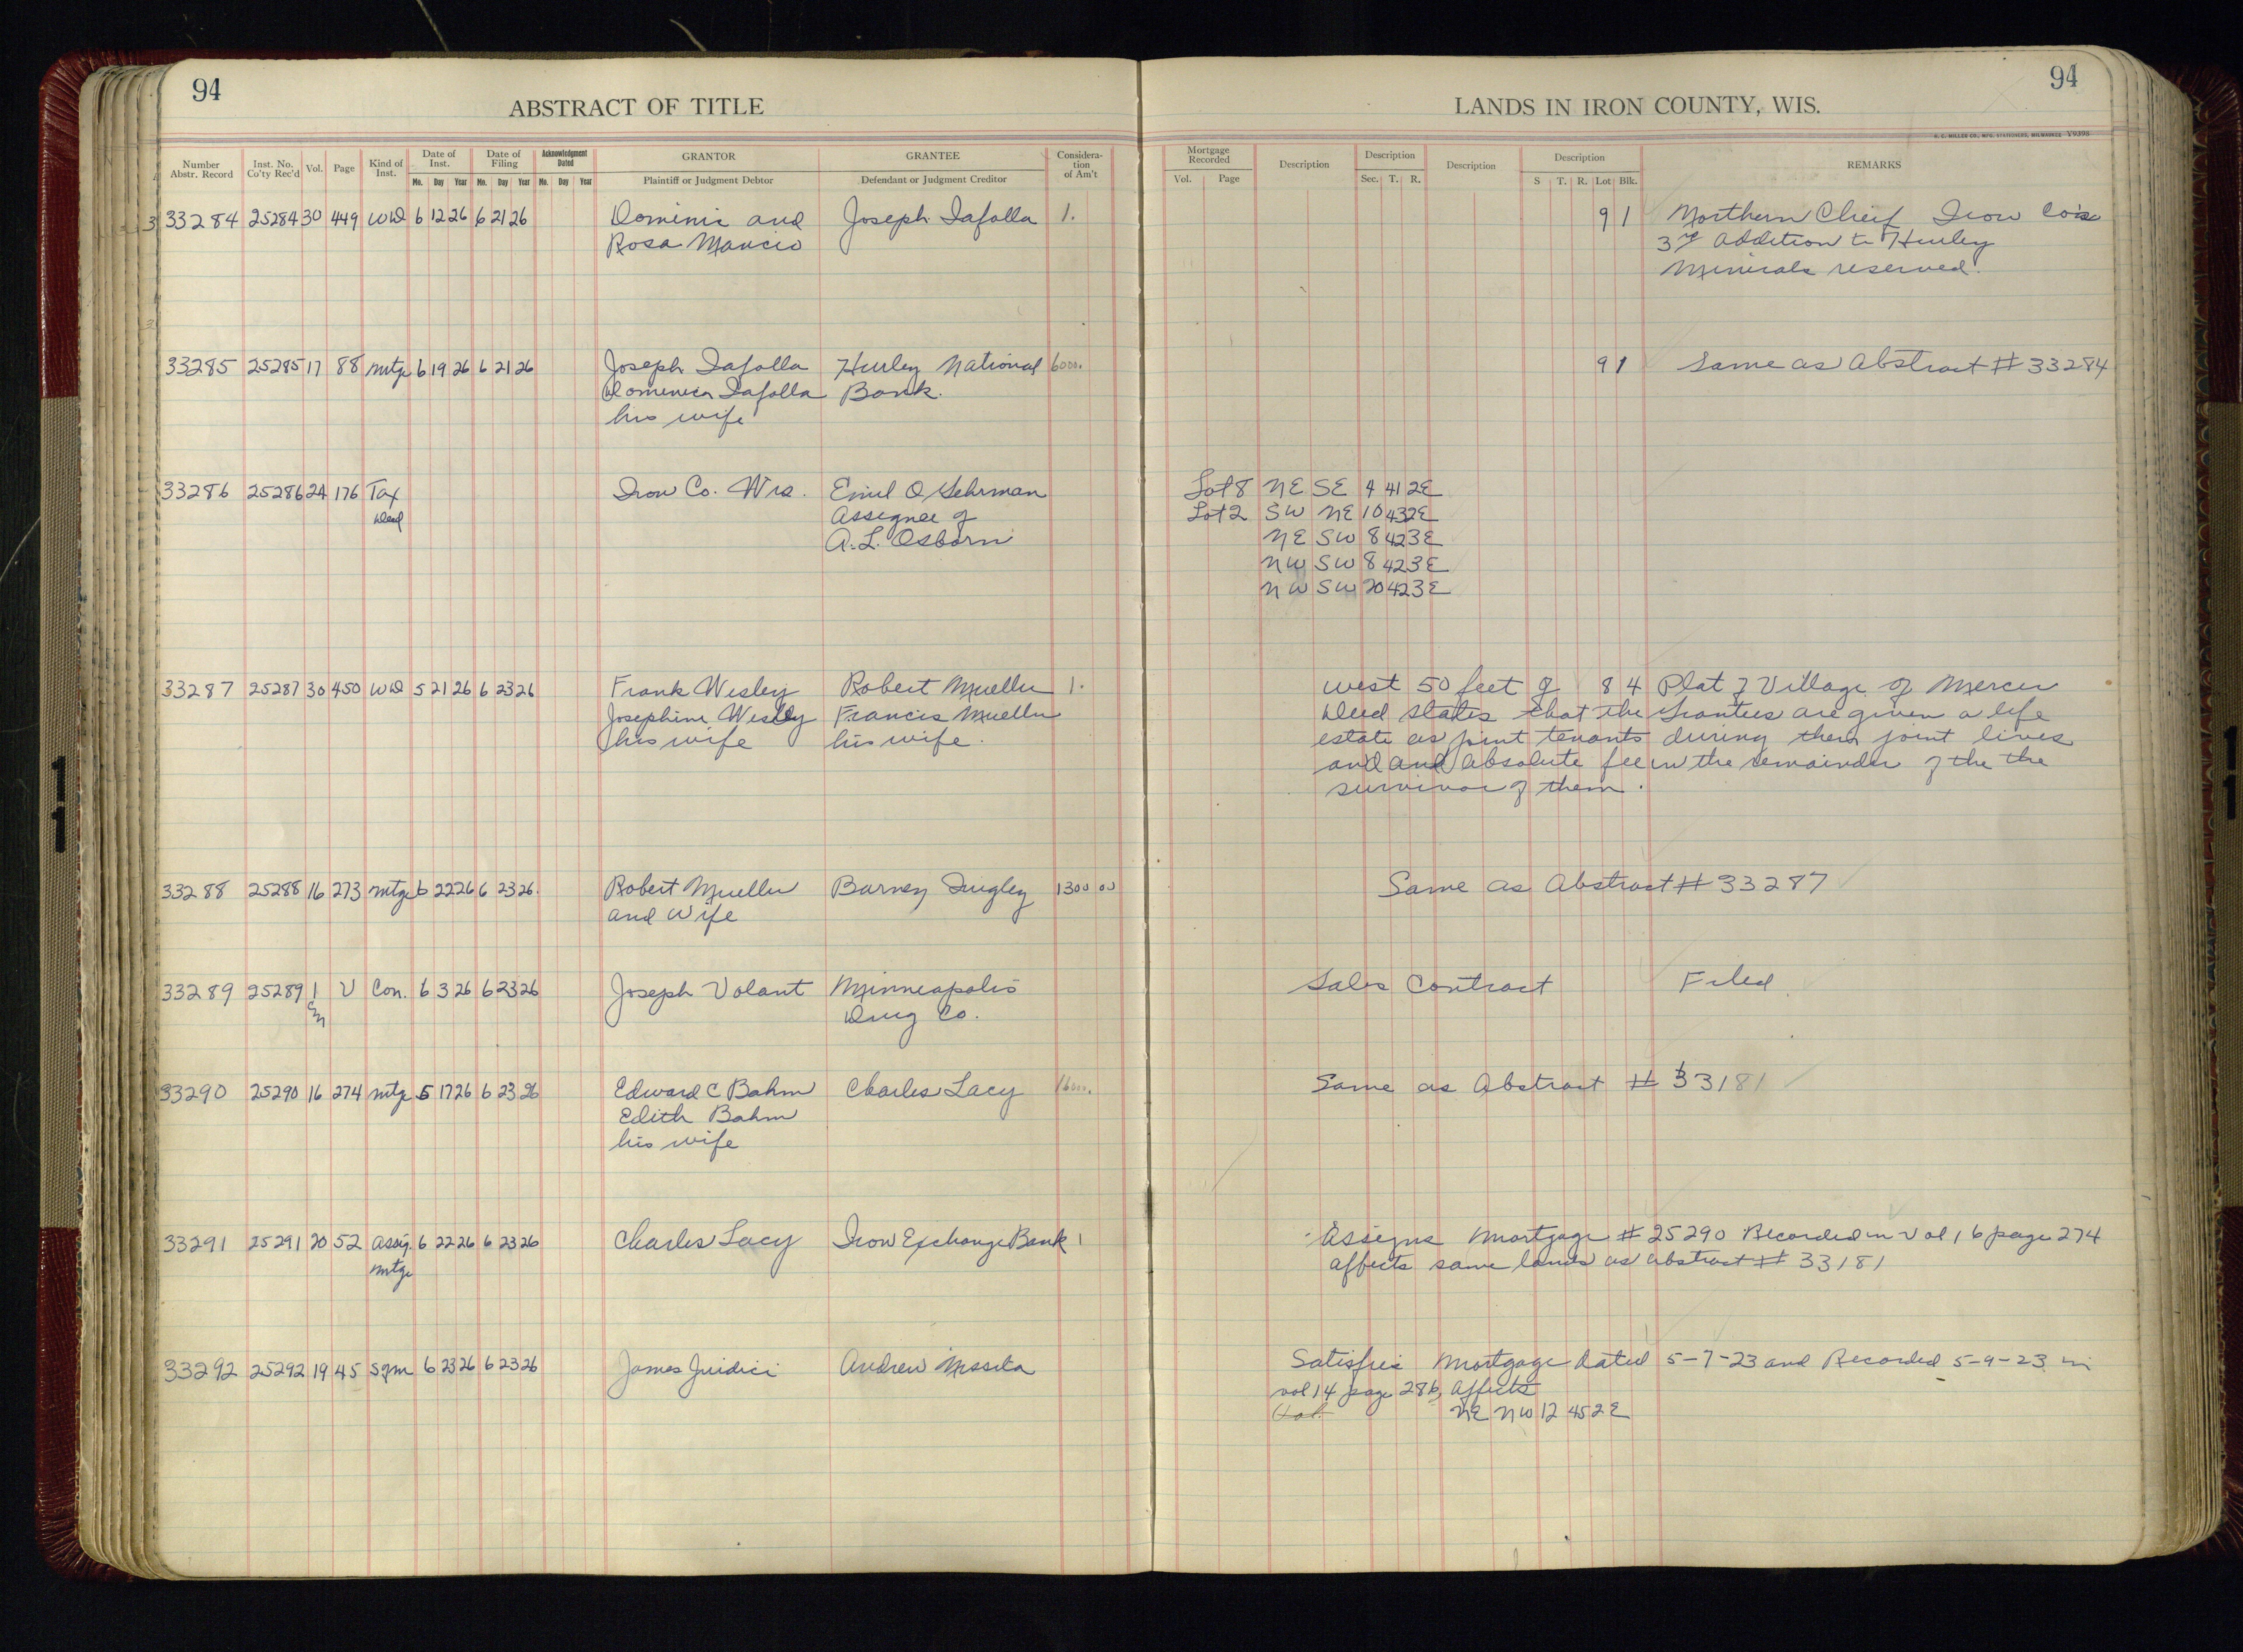 94
94
ABSTRACT OF TITLE
LANDS IN IRON COUNTY, WIS.
H. C. MILLER CO., MFG. STATIONERS, MILWAUKEE Y9398
Number Abstr. Record | Inst. No. Co'ty Rec'd | Vol. | Page | Kind of Inst. | Date of Inst. Mo. Day Year | Date of Filing Mo. Day Year | Acknowledgment Dated Mo. Day Year | GRANTOR Plaintiff or Judgment Debtor | GRANTEE Defendant or Judgment Creditor | Consideration of Am't
Mortgage Recorded Vol. Page | Description | Description Sec. T. R. | Description | Description S T. R. Lot Blk. | REMARKS
33284 25284 30 449 WD 6 12 26 6 21 26 Dominic and Joseph Iafolla 1. 9 1 Northern Chief Iron Co's
Rosa Mancio 3rd addition to Hurley
Minerals reserved.
33285 25285 17 88 mtge 6 19 26 6 21 26 Joseph Iafolla Hurley National 6000. 9 1 Same as Abstract # 33284
Domenica Iafolla Bank.
his wife
33286 25286 24 176 Tax Iron Co. Wis. Emil O Sehrman Lot 8 NE SE 4 41 2E
Deed Assignee of Lot 2 SW NE 10 43 2E
A. L. Osborn NE SW 8 42 3E
NW SW 8 42 3E
NW SW 20 42 3E
33287 25287 30 450 WD 5 21 26 6 23 26 Frank Wesley Robert Mueller 1. West 50 feet of 8 4 Plat of Village of Mercer
Josephine Wesley Francis Mueller Deed states that the Grantees are given a life
his wife his wife. estate as joint tenants during their joint lives
and and absolute fee in the remainder of the the
survivor of them.
33288 25288 16 273 mtge 6 22 26 6 23 26. Robert Mueller Barney Dingley 1300 00 Same as Abstract # 33287
and Wife
33289 25289 1 V Con. 6 3 26 6 23 26 Joseph Volant Minneapolis Sales Contract Filed
Drug Co.
33290 25290 16 274 mtge 5 17 26 6 23 26 Edward C Bahm Charles Lacy 1600. Same as Abstract # 33181
Edith Bahm
his wife
33291 25291 20 52 assig. 6 22 26 6 23 26 Charles Lacy Iron Exchange Bank 1 Assigns Mortgage # 25290 Recorded in Vol 16 page 274
mtge affects same lands as abstract # 33181
33292 25292 19 45 Sgm 6 23 26 6 23 26 James Juidici Andrew Massita Satisfies Mortgage Dated 5-7-23 and Recorded 5-9-23 in
vol 14 page 286, affects
NE NW 12 45 2E